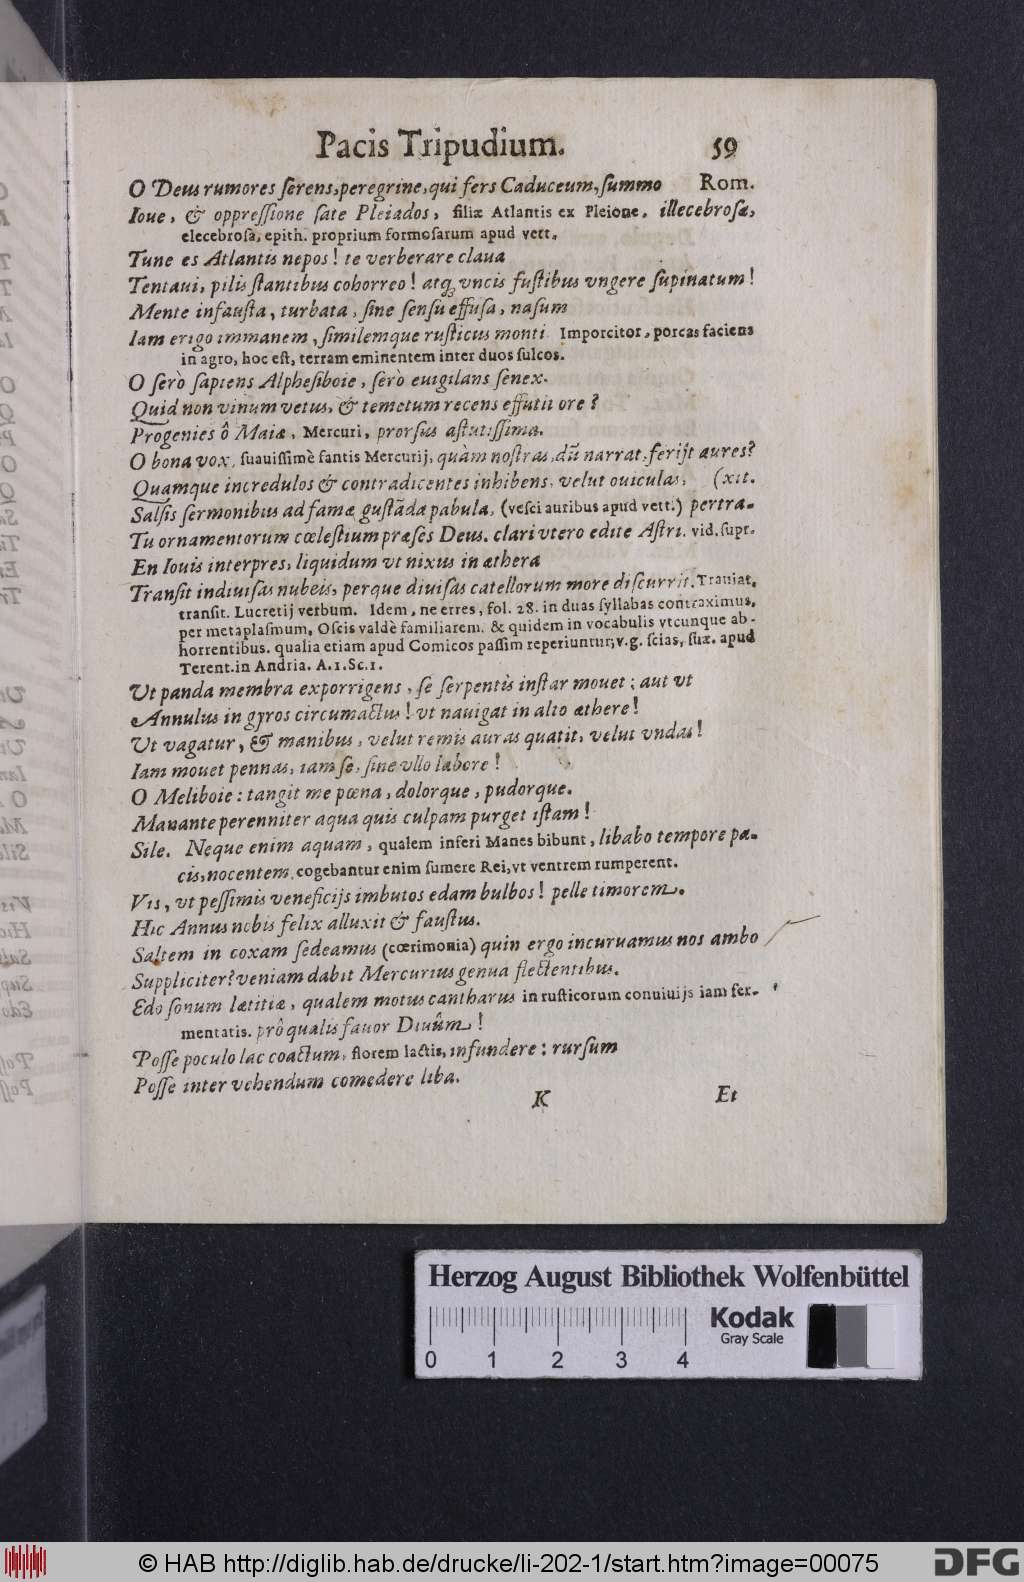 Pacis Tripudium. 59
O Deus rumores serens, peregrine, qui fers Caduceum, summo Rom.
Ioue, & oppressione sate Pleiados, filiæ Atlantis ex Pleione, illecebrosæ,
elecebrosa, epith. proprium formosarum apud vett.
Tune es Atlantis nepos! te verberare claua
Tentaui, pilis stantibus cohorreo! atq; vncis fustibus vngere supinatum!
Mente infausta, turbata, sine sensu effusa, nasum
Iam erigo immanem, similemque rusticus monti Imporcitor, porcas faciens
in agro, hoc est, terram eminentem inter duos sulcos.
O serò sapiens Alphesiboie, serò euigilans senex.
Quid non vinum vetus, & temetum recens effutit ore?
Progenies ô Maiæ, Mercuri, prorsus astutissima.
O bona vox, suauissimè fantis Mercurij, quàm nostras, dũ narrat, ferijt aures?
Quamque incredulos & contradicentes inhibens, velut ouiculas, (xit.
Salsis sermonibus ad famæ gustãda pabula, (vesci auribus apud vett.) pertra-
Tu ornamentorum cœlestium præses Deus. clari vtero edite Astri. vid. supr.
En Iouis interpres, liquidum vt nixus in æthera
Transit indiuisas nubeis, perque diuisas catellorum more discurrit. Trauiat,
transit. Lucretij verbum. Idem, ne erres, fol. 28. in duas syllabas contraximus,
per metaplasmum, Oscis valdè familiarem. & quidem in vocabulis vtcunque ab-
horrentibus. qualia etiam apud Comicos passim reperiuntur; v.g. scias, suæ. apud
Terent. in Andria. A.1.Sc.1.
Ut panda membra exporrigens, se serpentis instar mouet; aut ut
Annulus in gyros circumactus! ut nauigat in alto æthere!
Ut vagatur, & manibus, velut remis auras quatit, velut vndas!
Iam mouet pennas, iam se, sine vllo labore!
O Meliboie: tangit me pœna, dolorque, pudorque.
Manante perenniter aqua quis culpam purget istam!
Sile. Neque enim aquam, qualem inferi Manes bibunt, libabo tempore pa-
cis, nocentem, cogebantur enim sumere Rei, vt ventrem rumperent.
Vis, vt pessimis veneficijs imbutos edam bulbos! pelle timorem.
Hic Annus nobis felix alluxit & faustus.
Saltem in coxam sedeamus (cœrimonia) quin ergo incuruamus nos ambo
Suppliciter? veniam dabit Mercurius genua flectentibus.
Edo sonum lætitiæ, qualem motus cantharus in rusticorum conuiuijs iam fer-
mentatis. prô qualis fauor Diuûm!
Posse poculo lac coactum, florem lactis, infundere: rursum
Posse inter vehendum comedere liba.
K Et
Herzog August Bibliothek Wolfenbüttel
Kodak
Gray Scale
0 1 2 3 4
© HAB http://diglib.hab.de/drucke/li-202-1/start.htm?image=00075
DFG